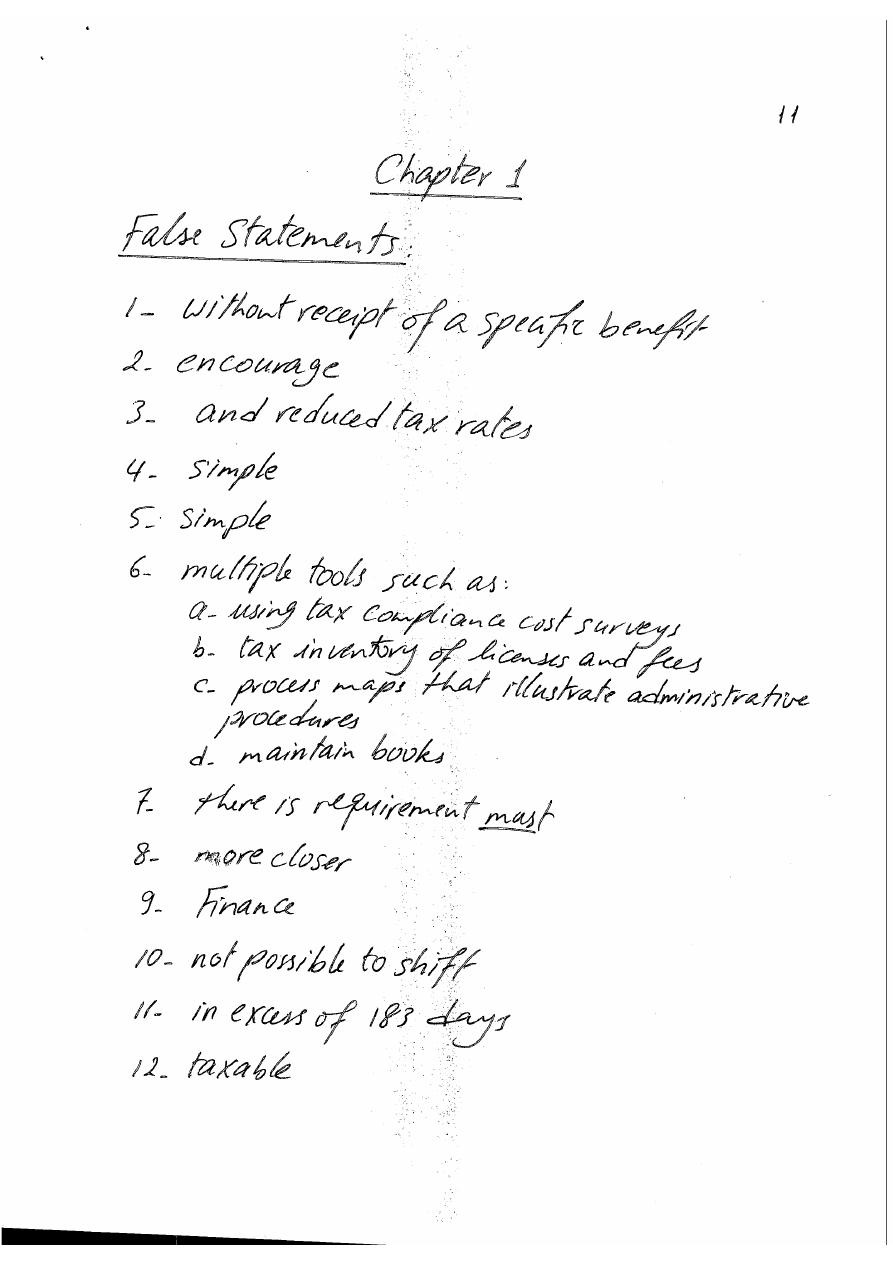 11
Chapter 1
False Statements:
1- without receipt of a specific benefit
2- encourage
3- and reduced tax rates
4- simple
5- simple
6- multiple tools such as:
a- using tax compliance cost surveys
b- tax inventory of licenses and fees
c- process maps that illustrate administrative
procedures
d- maintain books
7- there is requirement must
8- more closer
9- Finance
10- not possible to shift
11- in excess of 183 days
12- taxable